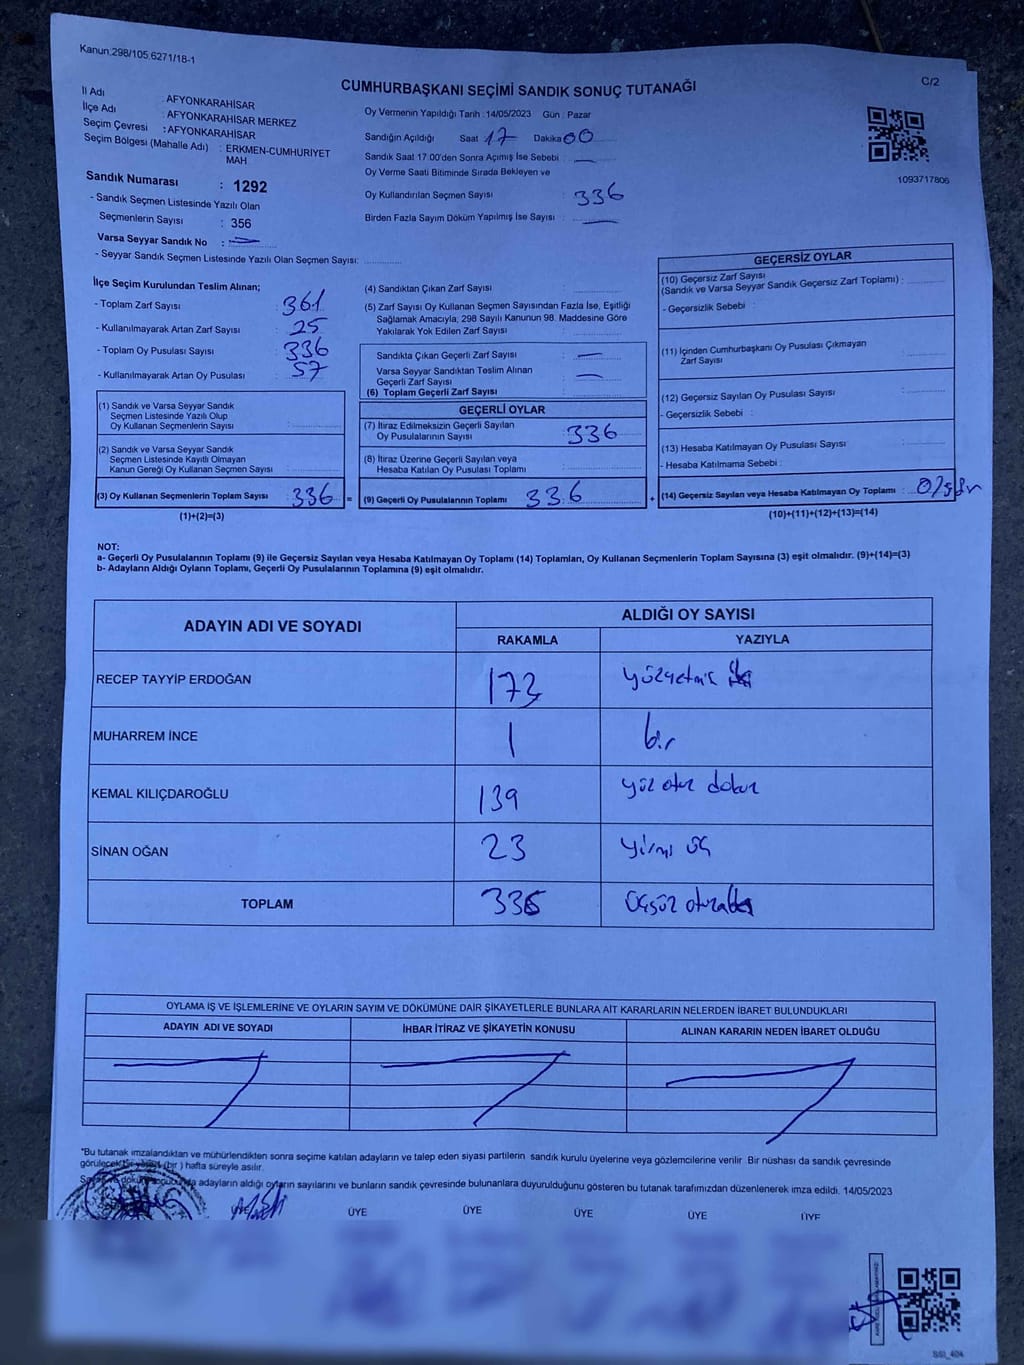 Kanun:298/105.6271/18-1
C/2
CUMHURBAŞKANI SEÇİMİ SANDIK SONUÇ TUTANAĞI
İl Adı : AFYONKARAHİSAR
İlçe Adı : AFYONKARAHİSAR MERKEZ
Seçim Çevresi : AFYONKARAHİSAR
Seçim Bölgesi (Mahalle Adı) : ERKMEN-CUMHURİYET
MAH.
Sandık Numarası : 1292
- Sandık Seçmen Listesinde Yazılı Olan
Seçmenlerin Sayısı : 356
Varsa Seyyar Sandık No : —
- Seyyar Sandık Seçmen Listesinde Yazılı Olan Seçmen Sayısı:
Oy Vermenin Yapıldığı Tarih :14/05/2023 Gün : Pazar
Sandığın Açıldığı Saat 17 Dakika 00
Sandık Saat 17:00'den Sonra Açımış İse Sebebi : —
Oy Verme Saati Bitiminde Sırada Bekleyen ve
Oy Kullandırılan Seçmen Sayısı : 336
Birden Fazla Sayım Döküm Yapılmış İse Sayısı : —
1093717806
İlçe Seçim Kurulundan Teslim Alınan;
- Toplam Zarf Sayısı : 361
- Kullanılmayarak Artan Zarf Sayısı : 25
- Toplam Oy Pusulası Sayısı : 336
- Kullanılmayarak Artan Oy Pusulası : 57
(1) Sandık ve Varsa Seyyar Sandık
Seçmen Listesinde Yazılı Olup
Oy Kullanan Seçmenlerin Sayısı :
(2) Sandık ve Varsa Seyyar Sandık
Seçmen Listesinde Kayıtlı Olmayan
Kanun Gereği Oy Kullanan Seçmen Sayısı :
(3) Oy Kullanan Seçmenlerin Toplam Sayısı : 336 =
(1)+(2)=(3)
(4) Sandıktan Çıkan Zarf Sayısı :
(5) Zarf Sayısı Oy Kullanan Seçmen Sayısından Fazla İse, Eşitliği
Sağlamak Amacıyla, 298 Sayılı Kanunun 98. Maddesine Göre
Yakılarak Yok Edilen Zarf Sayısı :
Sandıkta Çıkan Geçerli Zarf Sayısı : —
Varsa Seyyar Sandıktan Teslim Alınan
Geçerli Zarf Sayısı : —
(6) Toplam Geçerli Zarf Sayısı :
GEÇERLİ OYLAR
(7) İtiraz Edilmeksizin Geçerli Sayılan
Oy Pusulalarının Sayısı : 336
(8) İtiraz Üzerine Geçerli Sayılan veya
Hesaba Katılan Oy Pusulası Toplamı :
(9) Geçerli Oy Pusulalarının Toplamı : 336 +
GEÇERSİZ OYLAR
(10) Geçersiz Zarf Sayısı
(Sandık ve Varsa Seyyar Sandık Geçersiz Zarf Toplamı) :
- Geçersizlik Sebebi :
(11) İçinden Cumhurbaşkanı Oy Pusulası Çıkmayan
Zarf Sayısı :
(12) Geçersiz Sayılan Oy Pusulası Sayısı :
- Geçersizlik Sebebi :
(13) Hesaba Katılmayan Oy Pusulası Sayısı :
- Hesaba Katılmama Sebebi :
(14) Geçersiz Sayılan veya Hesaba Katılmayan Oy Toplamı : 0/sıfır
(10)+(11)+(12)+(13)=(14)
NOT:
a- Geçerli Oy Pusulalarının Toplamı (9) ile Geçersiz Sayılan veya Hesaba Katılmayan Oy Toplamı (14) Toplamları, Oy Kullanan Seçmenlerin Toplam Sayısına (3) eşit olmalıdır. (9)+(14)=(3)
b- Adayların Aldığı Oyların Toplamı, Geçerli Oy Pusulalarının Toplamına (9) eşit olmalıdır.
ADAYIN ADI VE SOYADI ALDIĞI OY SAYISI
RAKAMLA YAZIYLA
RECEP TAYYİP ERDOĞAN 173 yüzyetmiş
MUHARREM İNCE 1 bir
KEMAL KILIÇDAROĞLU 139 yüz otuz dokuz
SİNAN OĞAN 23 yirmi üç
TOPLAM 336 üçyüz otuzaltı
OYLAMA İŞ VE İŞLEMLERİNE VE OYLARIN SAYIM VE DÖKÜMÜNE DAİR ŞİKAYETLERLE BUNLARA AİT KARARLARIN NELERDEN İBARET BULUNDUKLARI
ADAYIN ADI VE SOYADI İHBAR İTİRAZ VE ŞİKAYETİN KONUSU ALINAN KARARIN NEDEN İBARET OLDUĞU
*Bu tutanak imzalandıktan ve mühürlendikten sonra seçime katılan adayların ve talep eden siyasi partilerin sandık kurulu üyelerine veya gözlemcilerine verilir. Bir nüshası da sandık çevresinde
görülecek bir yere (bir ) hafta süreyle asılır.
adayların aldığı oyların sayılarını ve bunların sandık çevresinde bulunanlara duyurulduğunu gösteren bu tutanak tarafımızdan düzenlenerek imza edildi. 14/05/2023
ÜYE ÜYE ÜYE ÜYE ÜYE ÜYE
SSI_404